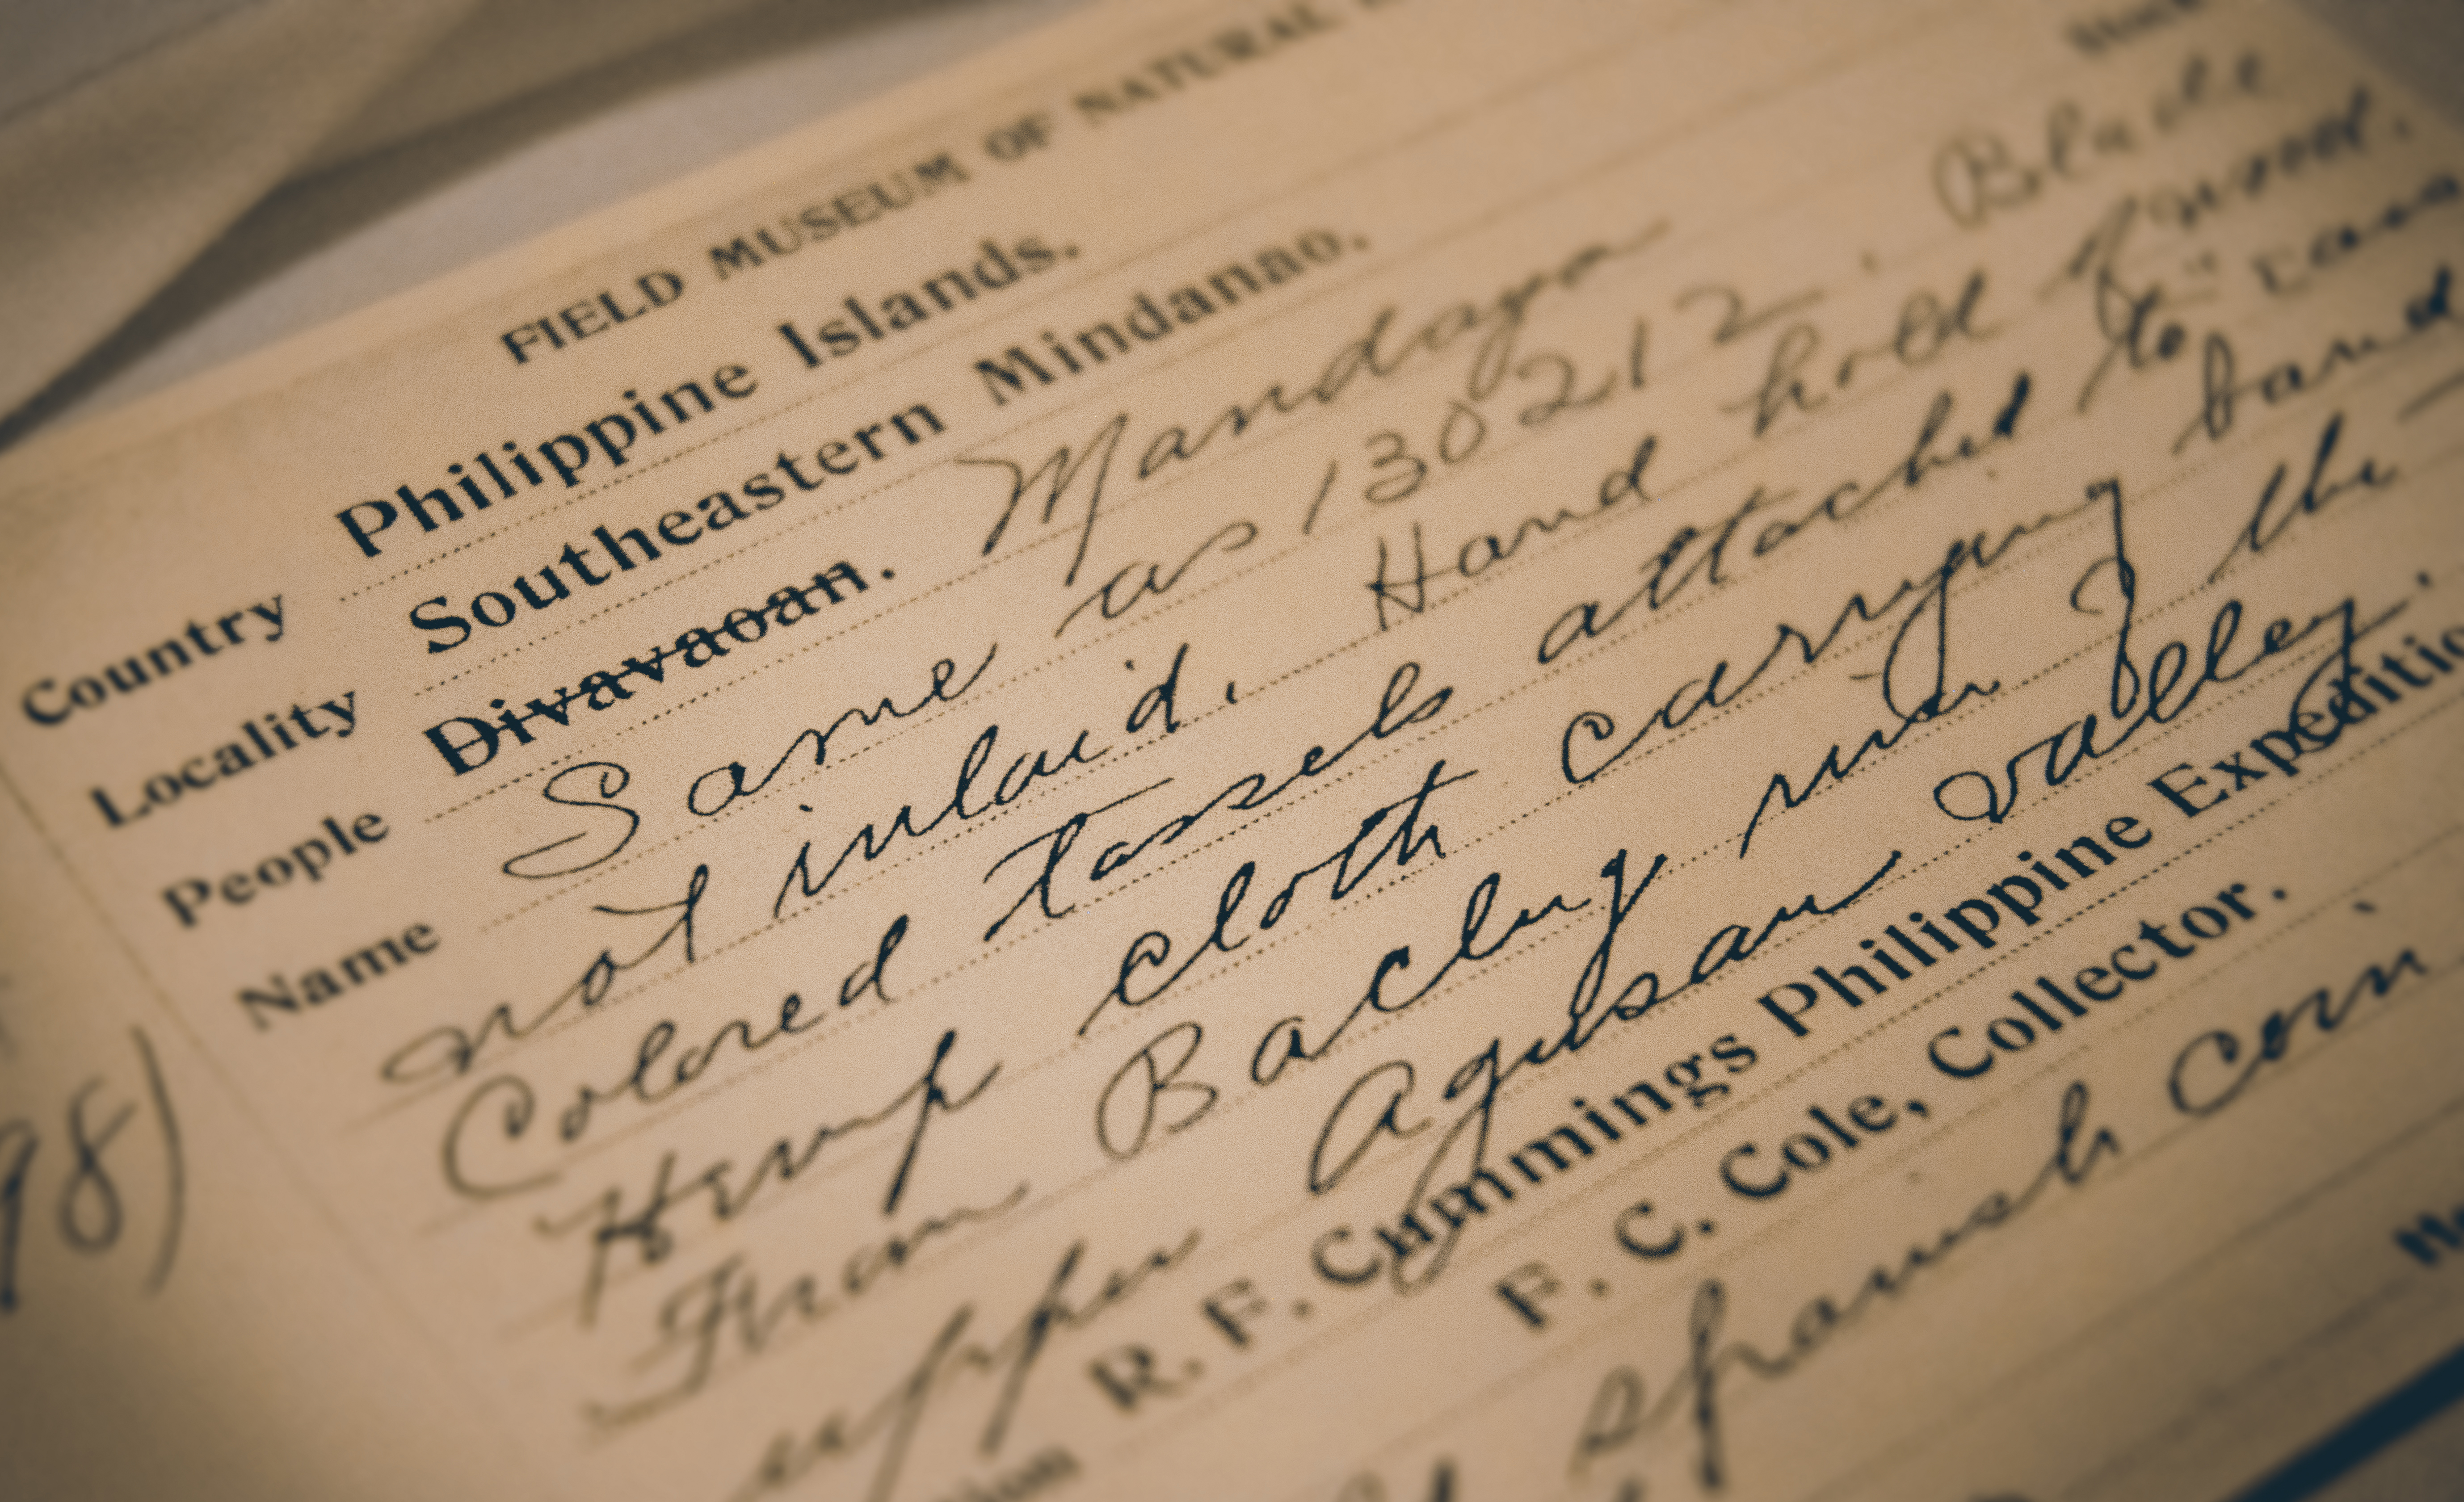 FIELD MUSEUM OF NATURAL
Country Philippine Islands.
Locality Southeastern Mindanao.
People Divavaoan. Mandaya
Name Same as 130212. Blade
not inlaid. Hand hold of wood.
Colored tassels attached to
Hemp cloth carrying band
From Baclug river the
upper Agusan valley.
R. F. Cummings Philippine Expeditio
F. C. Cole, Collector.
spanish coin
98)